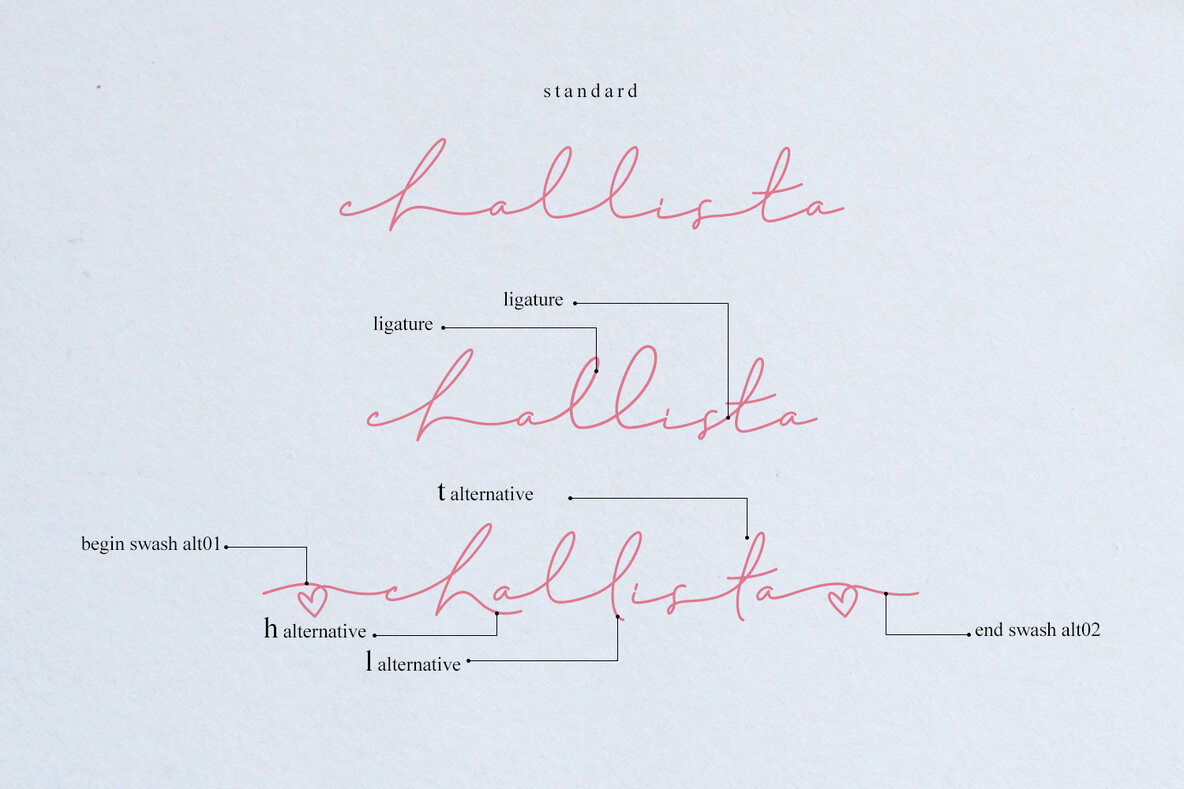 standard
challista
ligature
ligature
challista
t alternative
begin swash alt01
challista
h alternative
end swash alt02
l alternative